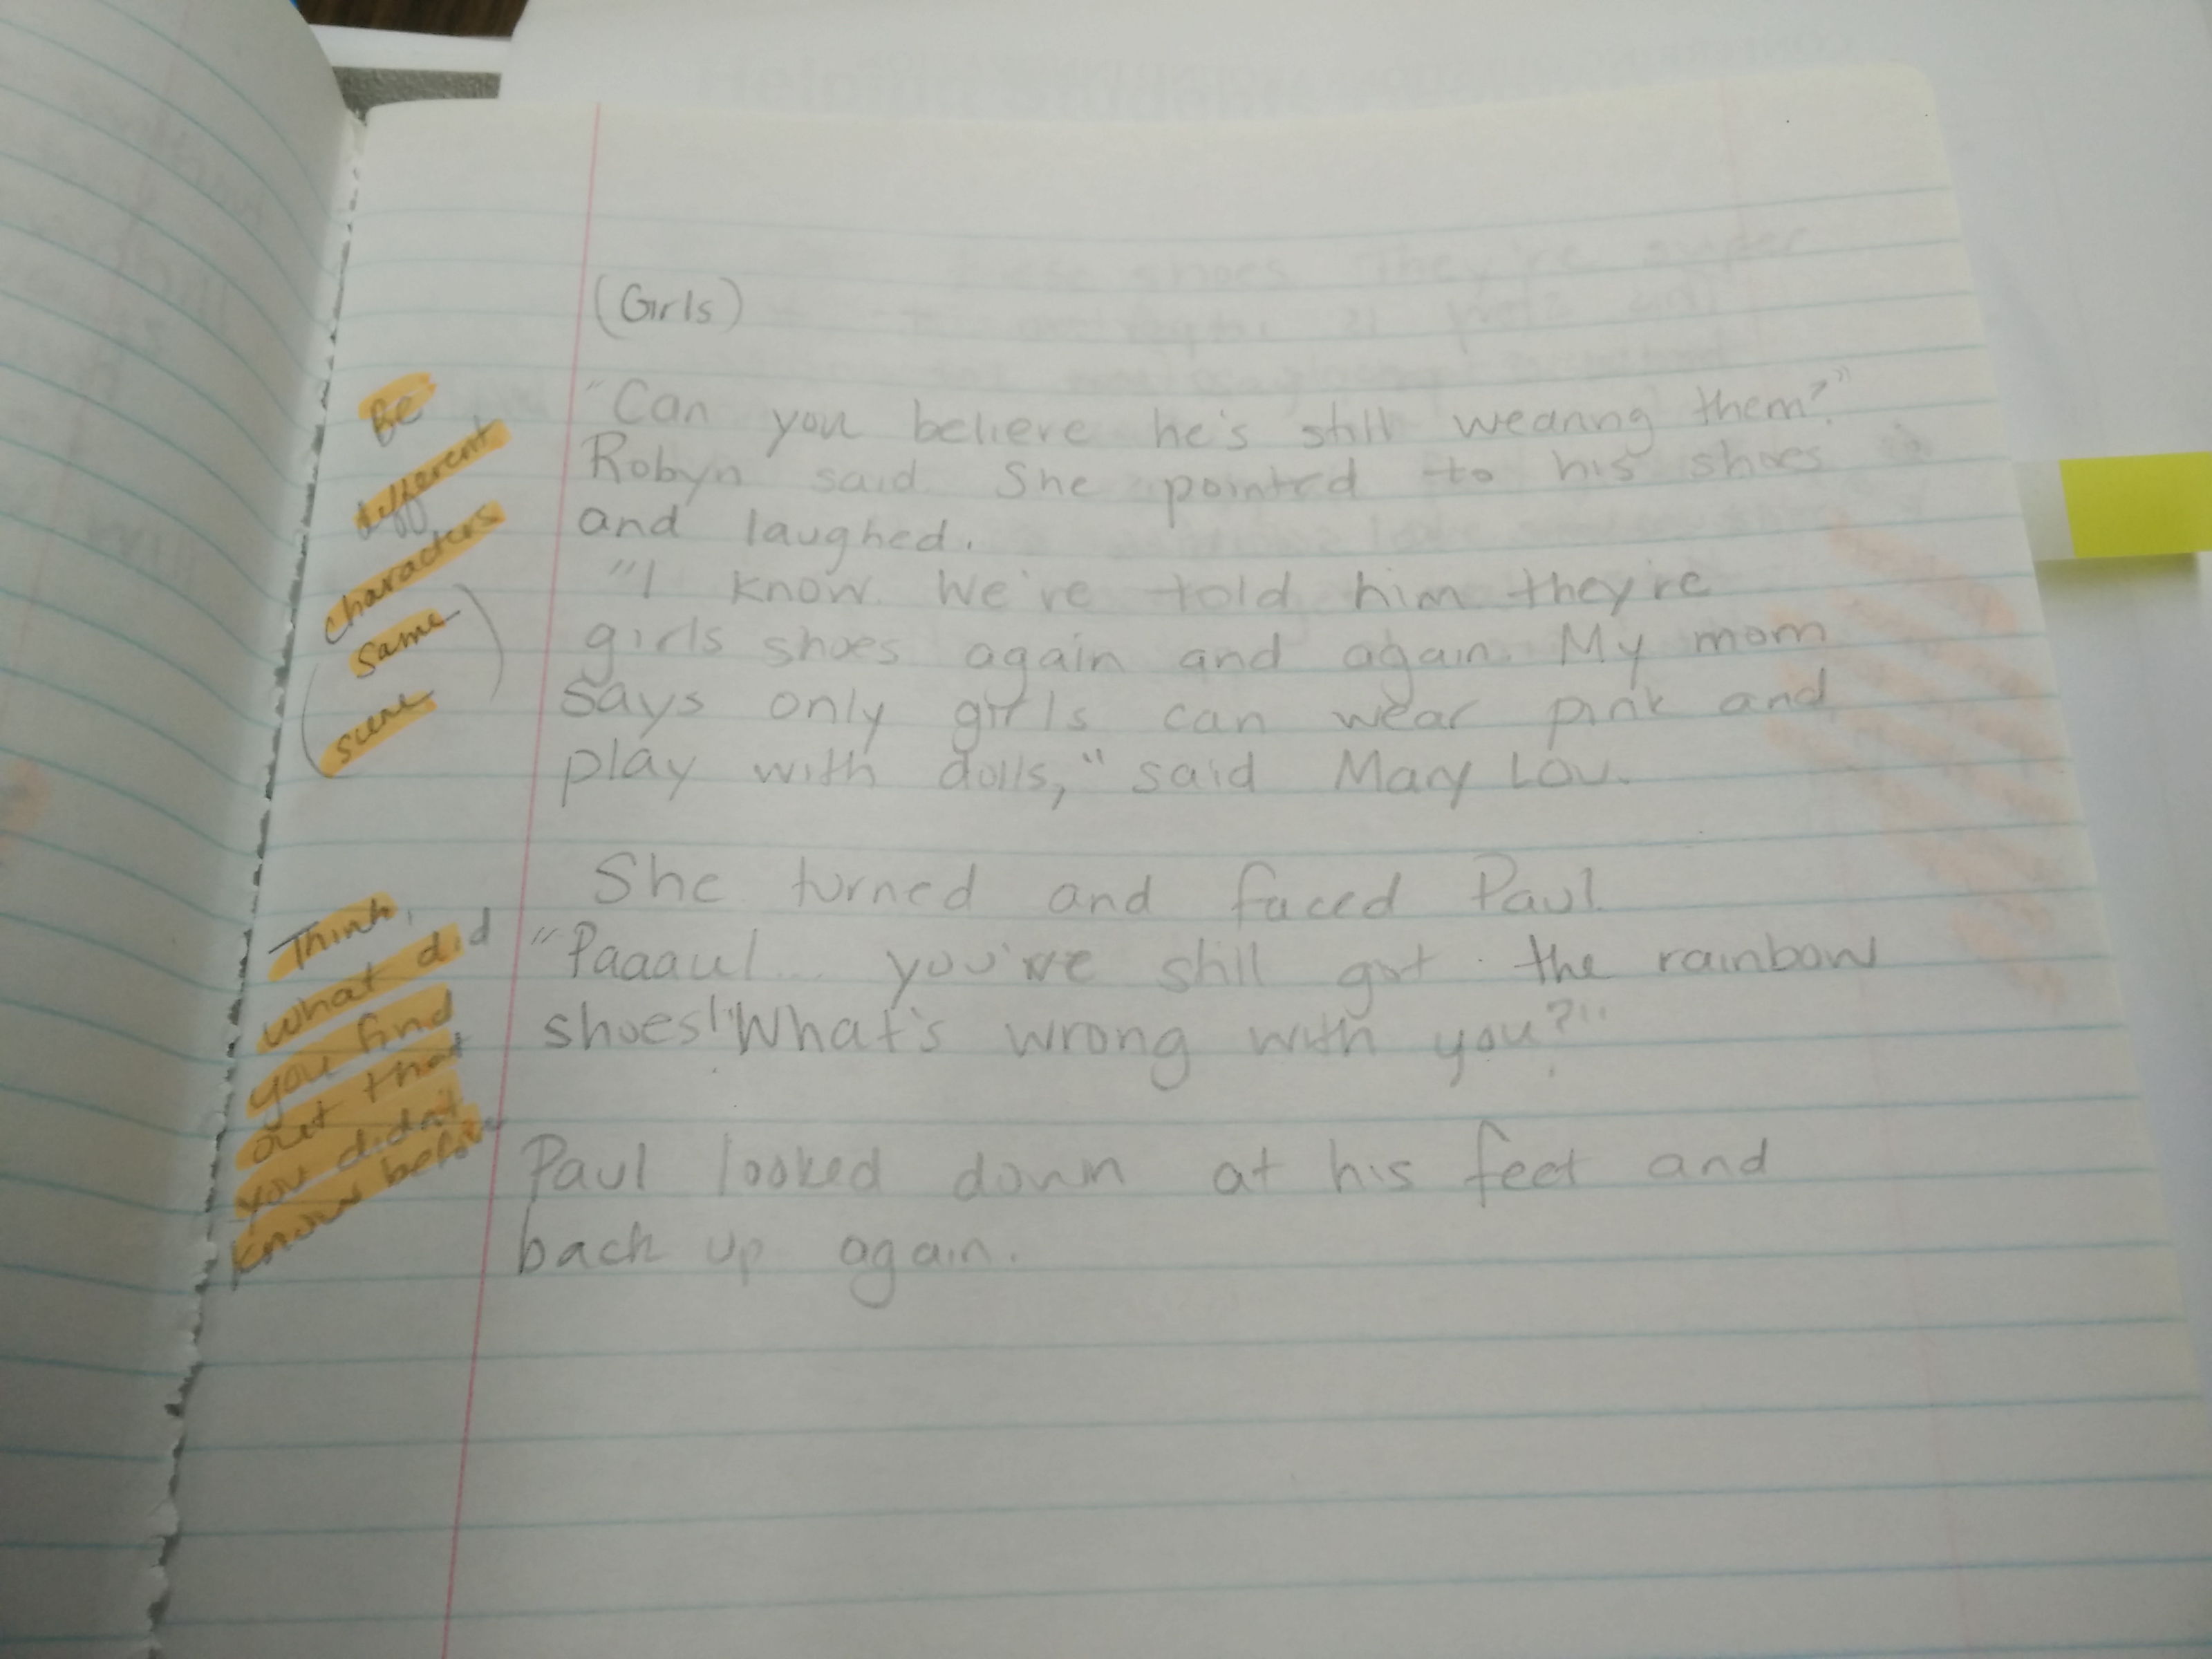 (Girls)
"Can you believe he's still wearing them?"
Robyn said. She pointed to his shoes
and laughed.
"I know. We've told him they're
girls shoes again and again. My mom
says only girls can wear pink and
play with dolls," said Mary Lou.
She turned and faced Paul.
"Paaaul... you've still got the rainbow
shoes! "What's wrong with you?"
Paul looked down at his feet and
back up again.
Be
different
characters
(same
scene)
Think,
what did
you find
out that
you didn't
know before
these shoes. They're super